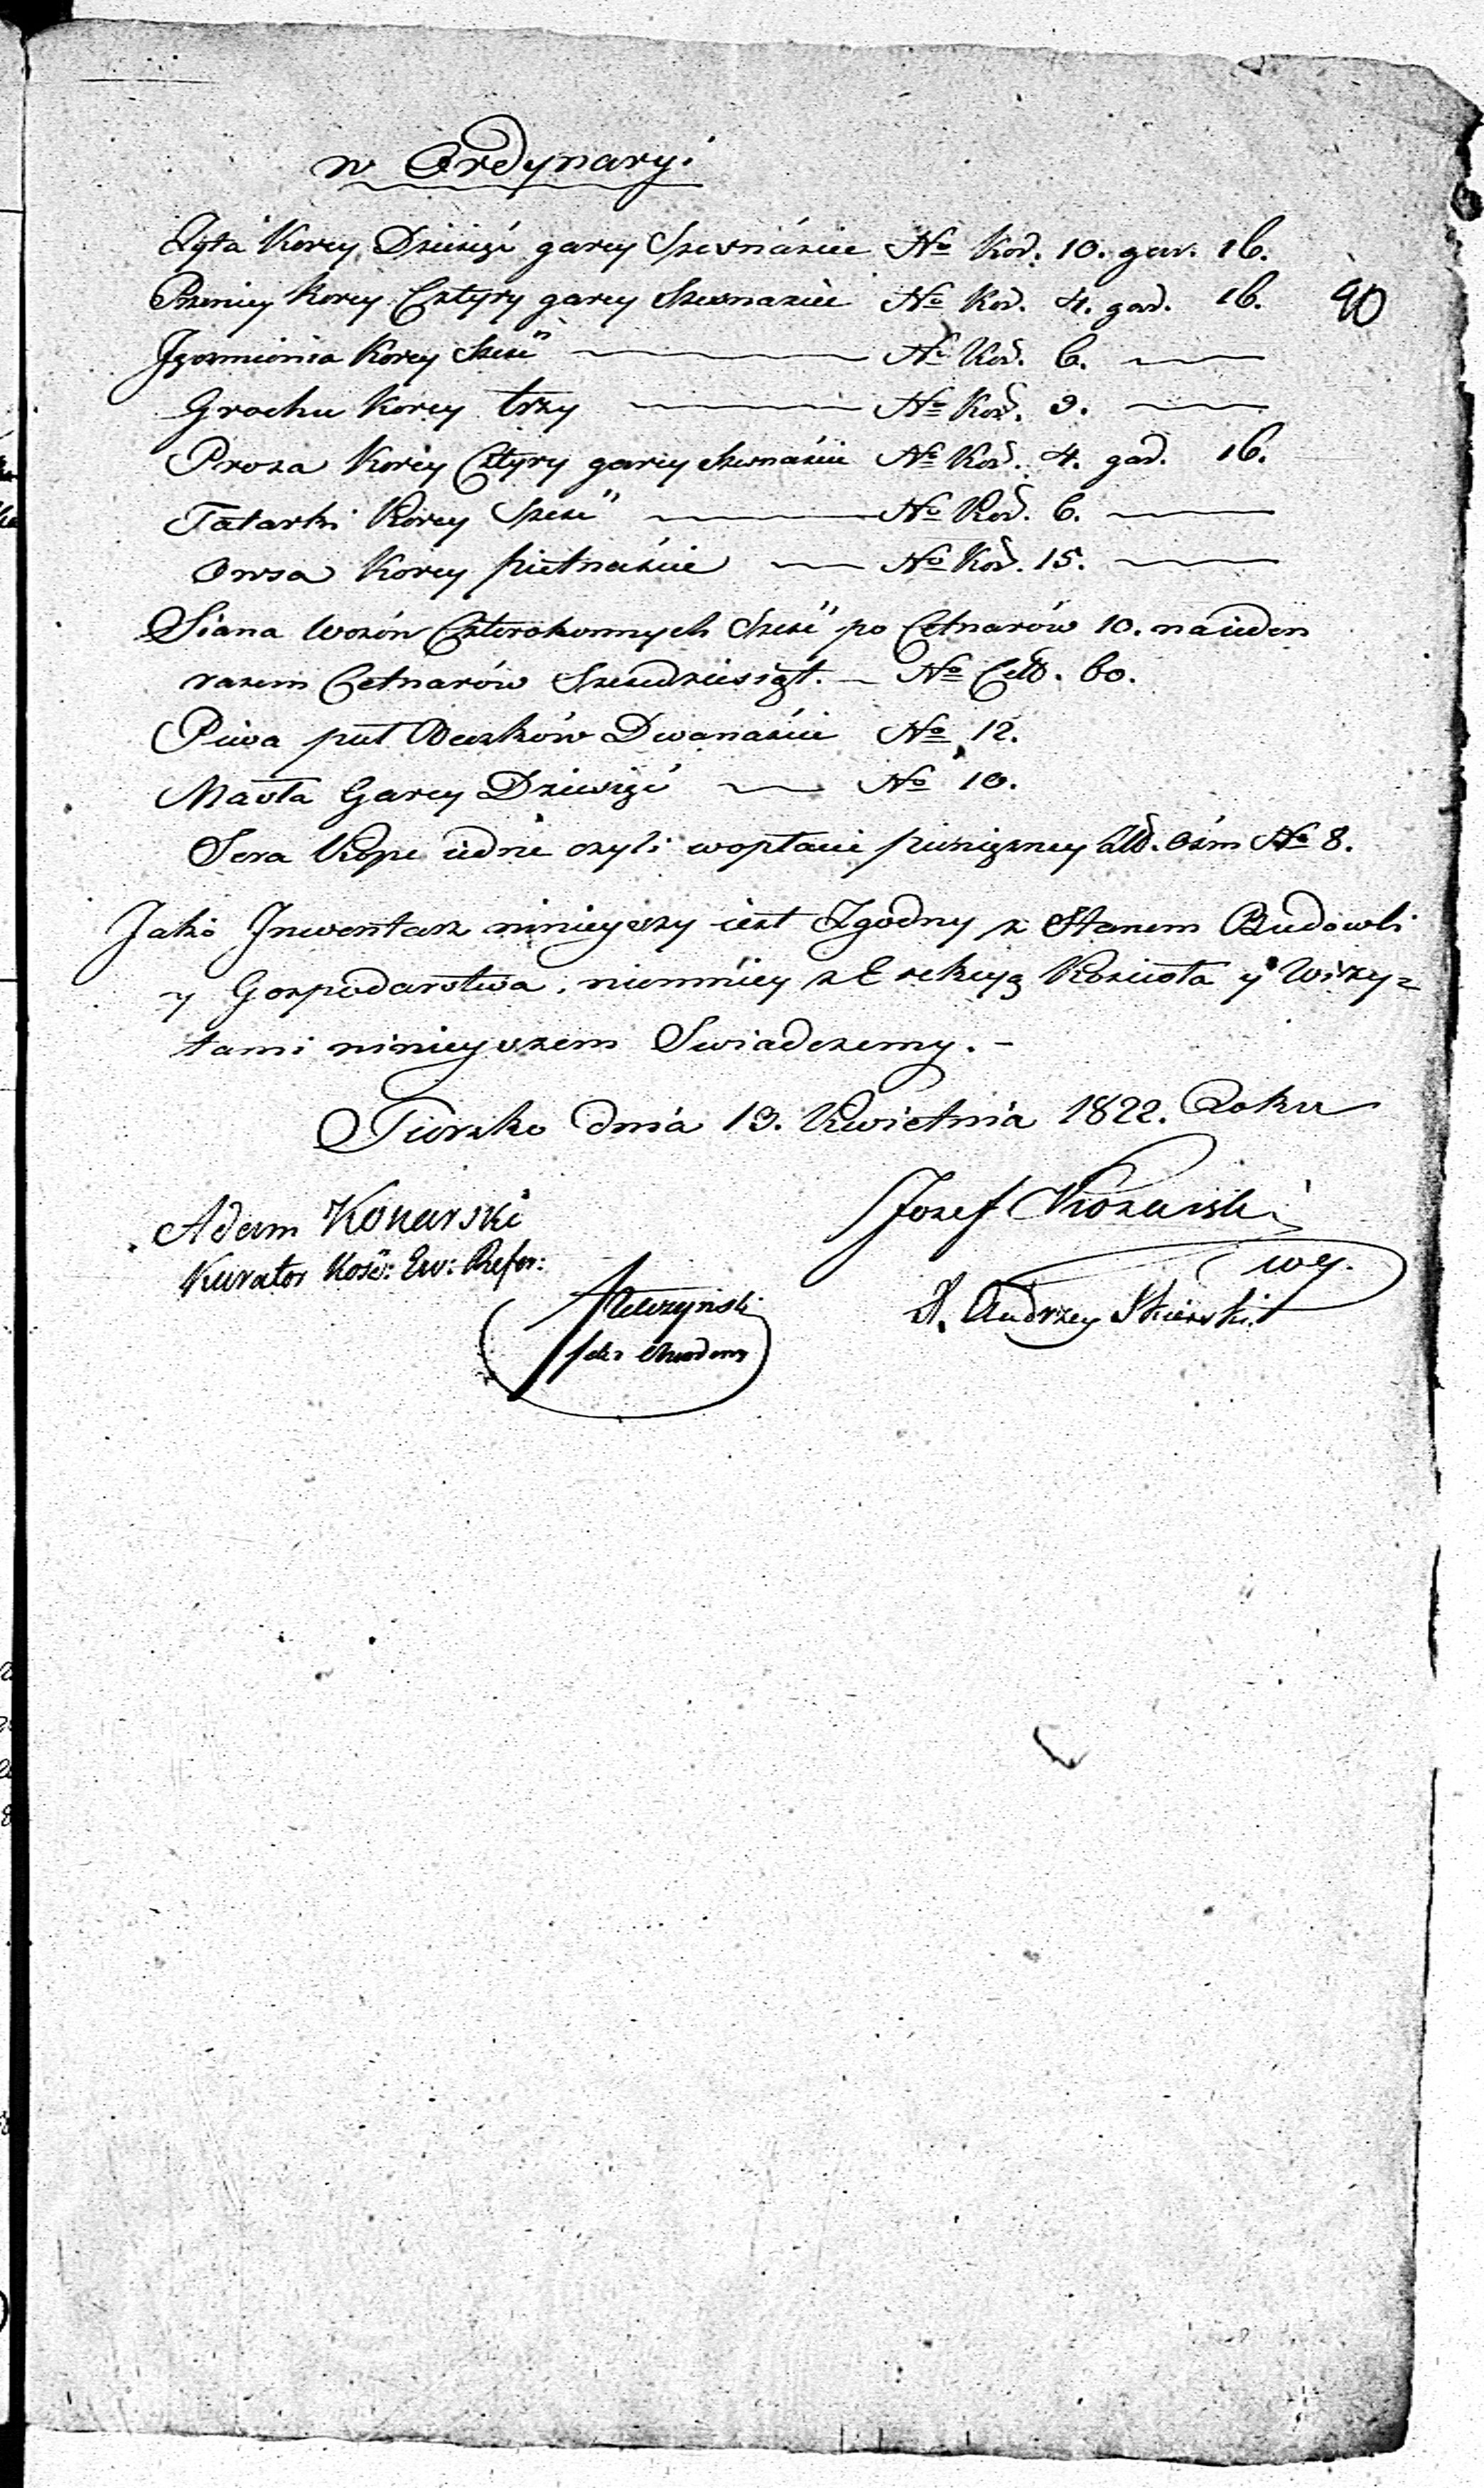 w Ordynaryi
Żyta Korcy Dziesięć garcy Szesnáście No Kor. 10. gar. 16.
Pszenicy Korcy Cztyry garcy Szesnascie No Kor. 4. gar. 16. 90
Jęczmienia Korcy Sześć No Kor. 6.
Grochu Korcy trzy No Kor. 3.
Prosa Korcy Cztyry garcy Szesnaście No Kor. 4. gar. 16.
Tatarki Korcy Sześć No Kor. 6.
Owsa Korcy pietnaście No Kor. 15.
Siana Wozów Czterokonnych Sześć po Cetnarów 10. na ieden
razem Cetnarów Szesdziesiąt. No Cett. 60.
Piwa puł Beczków Dwanaście No 12.
Masła Garcy Dziesięć No 10.
Sera Kopę iednę czyli w opłacie pieniężney ośm No 8.
Jako Inwentarz ninieyszy iest Zgodny z Stanem Budowli
y Gospodarstwa, niemniey z Erekcyą Kościoła y Wizy=
tami ninieyszem Swiadczemy. -
Sierzko dniá 13. Kwietnia 1822. Roku
Adam Konarski Jozef
Kurator Kość: Ew: Refor: X. Andrzey